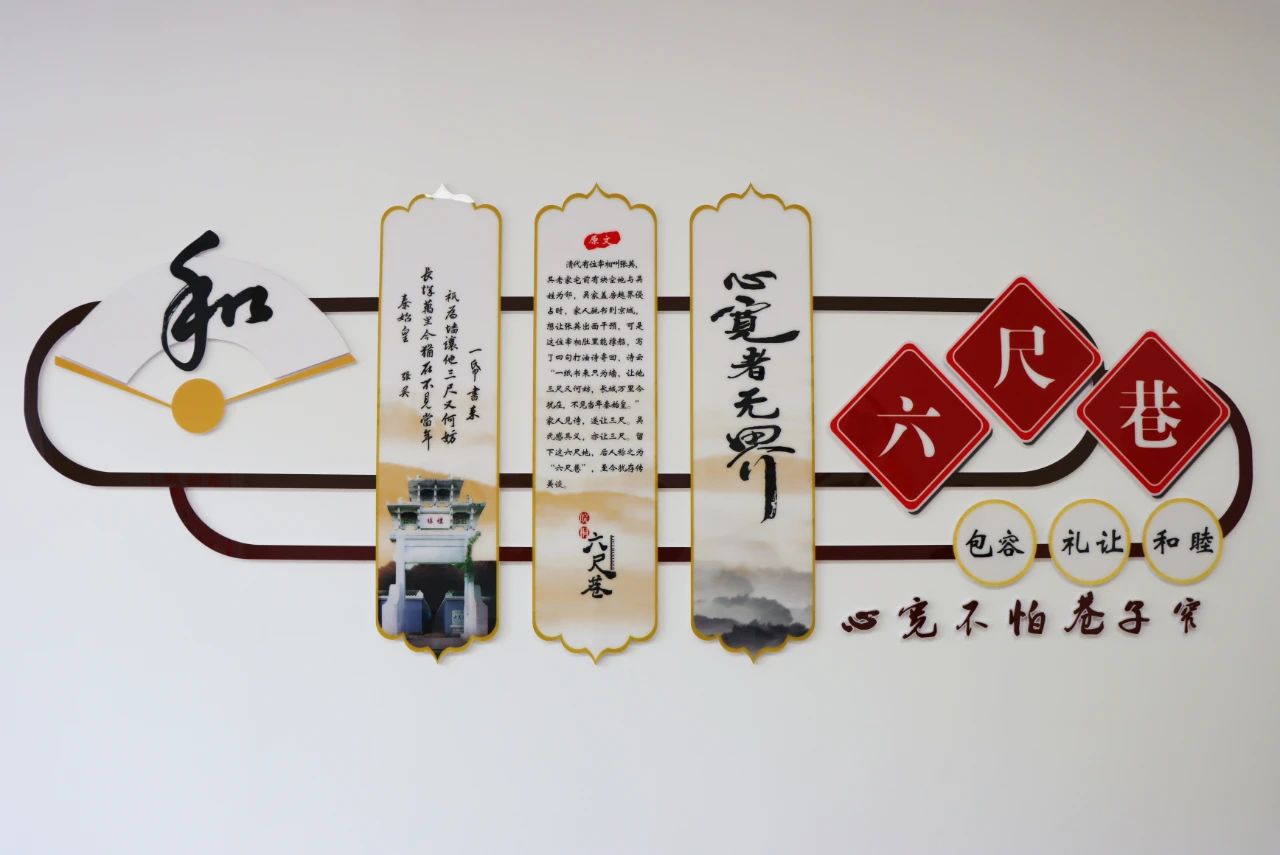 和
一帋書来
祇為墙讓他三尺又何妨
長城萬里今猶在不見當年
秦始皇 張英
原文
清代有位宰相叫张英，
其老家宅前有块空地与吴
姓为邻，吴家盖房越界侵
占时，家人驰书到京城，
想让张英出面干预，可是
这位宰相肚里能撑船，写
了四句打油诗寄回，诗云
“一纸书来只为墙，让他
三尺又何妨，长城万里今
犹在，不见当年秦始皇。”
家人见诗，遂让三尺。吴
氏感其义，亦让三尺。留
下这六尺地，后人称之为
“六尺巷”，至今犹存传
美谈。
六尺巷
心寛者无界
六尺巷
包容 礼让 和睦
心宽不怕巷子窄